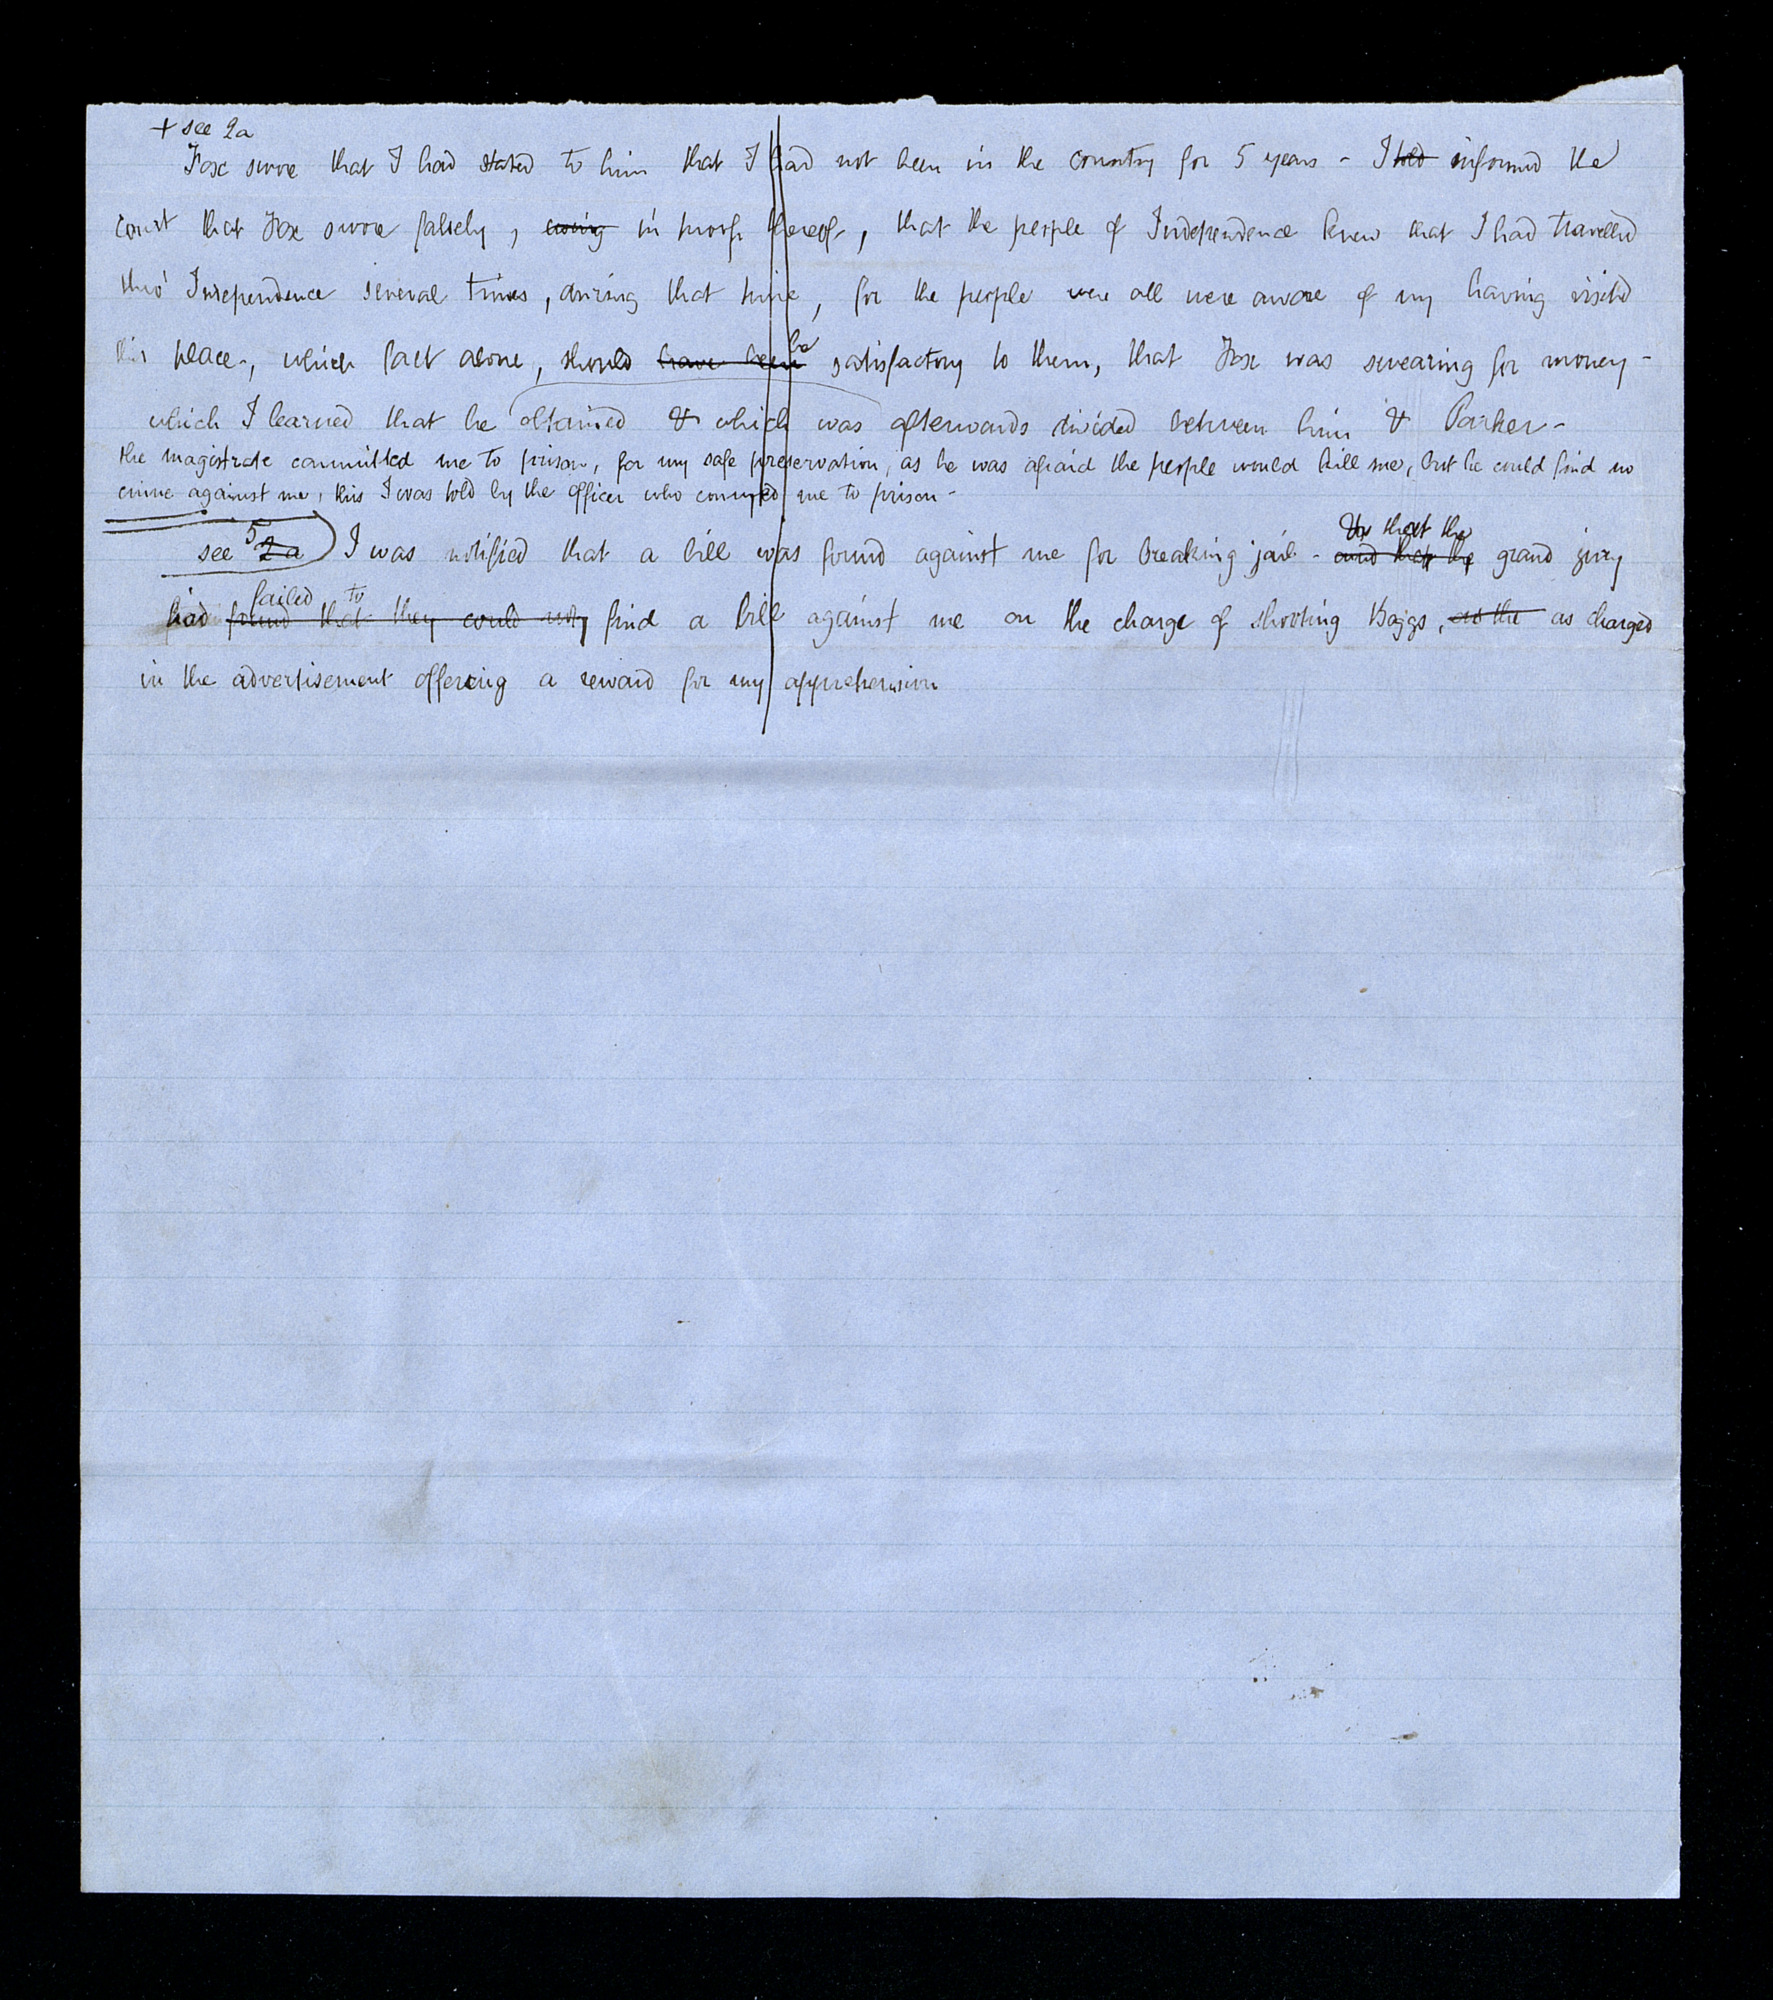 + see 2a
Fox swore that I had stated to him that I had not been in the country for 5 years - I told informed the
court that Fox swore falsely, in proof thereof, that the people of Independence knew that I had travelled
thro' Independence several times, during that time, for the people were all were aware of my having visited
this place, which fact alone, should have been be satisfactory to them, that Fox was swearing for money -
which I learned that he obtained & which was afterwards divided between him & Parker -
the magistrate committed me to prison, for my safe preservation, as he was afraid the people would kill me, but he could find no
crime against me, this I was told by the officer who conveyed me to prison -
see 2a 5 I was notified that a bill was found against me for breaking jail - and that the & that the grand jury
had found that they could not failed to find a bill against me on the charge of shooting Boggs, as the as charged
in the advertisement offering a reward for my apprehension